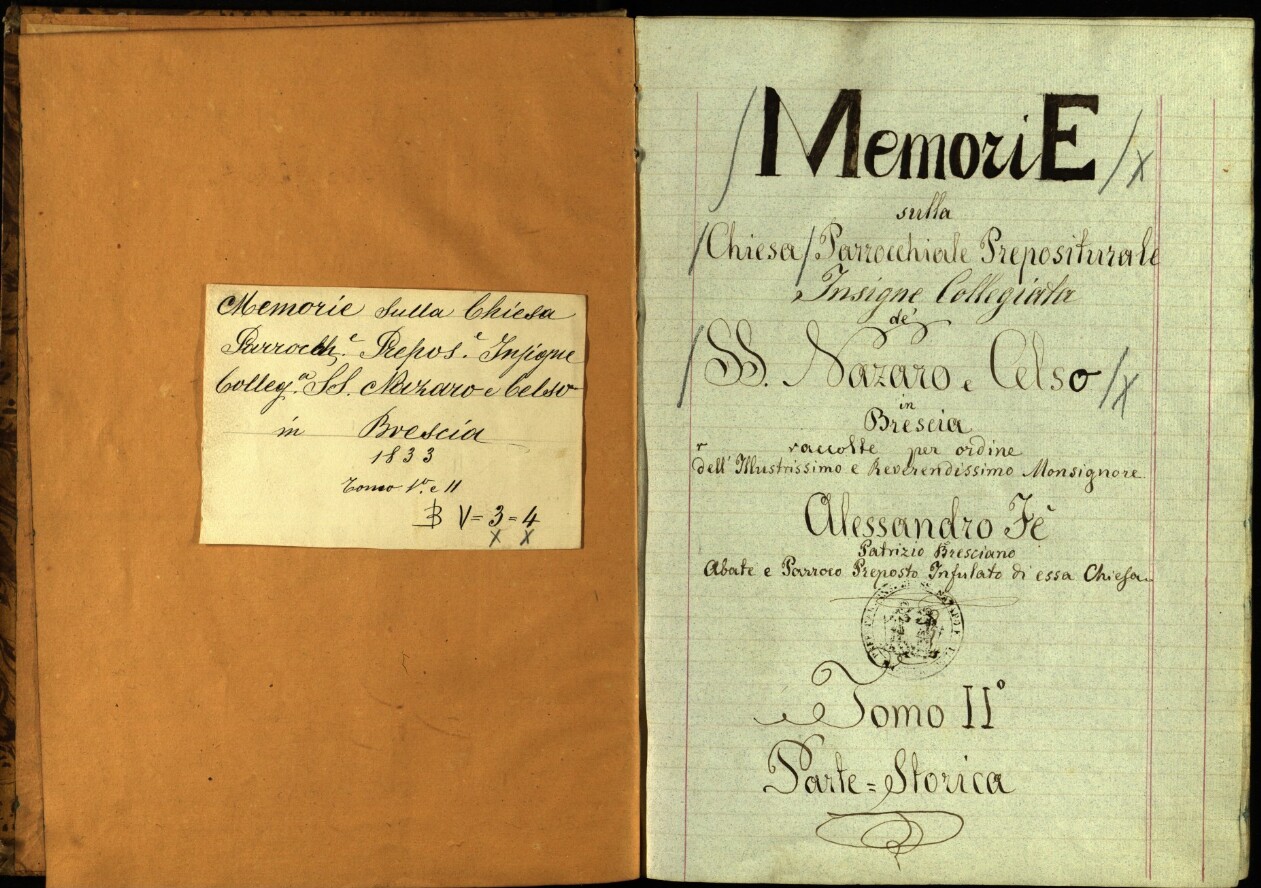 Memorie sulla Chiesa
Parroch.e Prepos.e Insigne
Colleg.a SS. Nazaro e Celso
in Brescia
1833
Tomo 1.° e 11
B V=3=4
x x
/MemoriE/x
sulla
/Chiesa/Parrocchiale Prepositurale
Insigne Collegiata
de'
/SS. Nazaro e Celso/x
in
Brescia
raccolte per ordine
dell'Illustrissimo e Reverendissimo Monsignore
Alessandro Fè
Patrizio Bresciano
Abate e Parroco Preposto Infulato di essa Chiesa.
Tomo II°
Parte=Storica